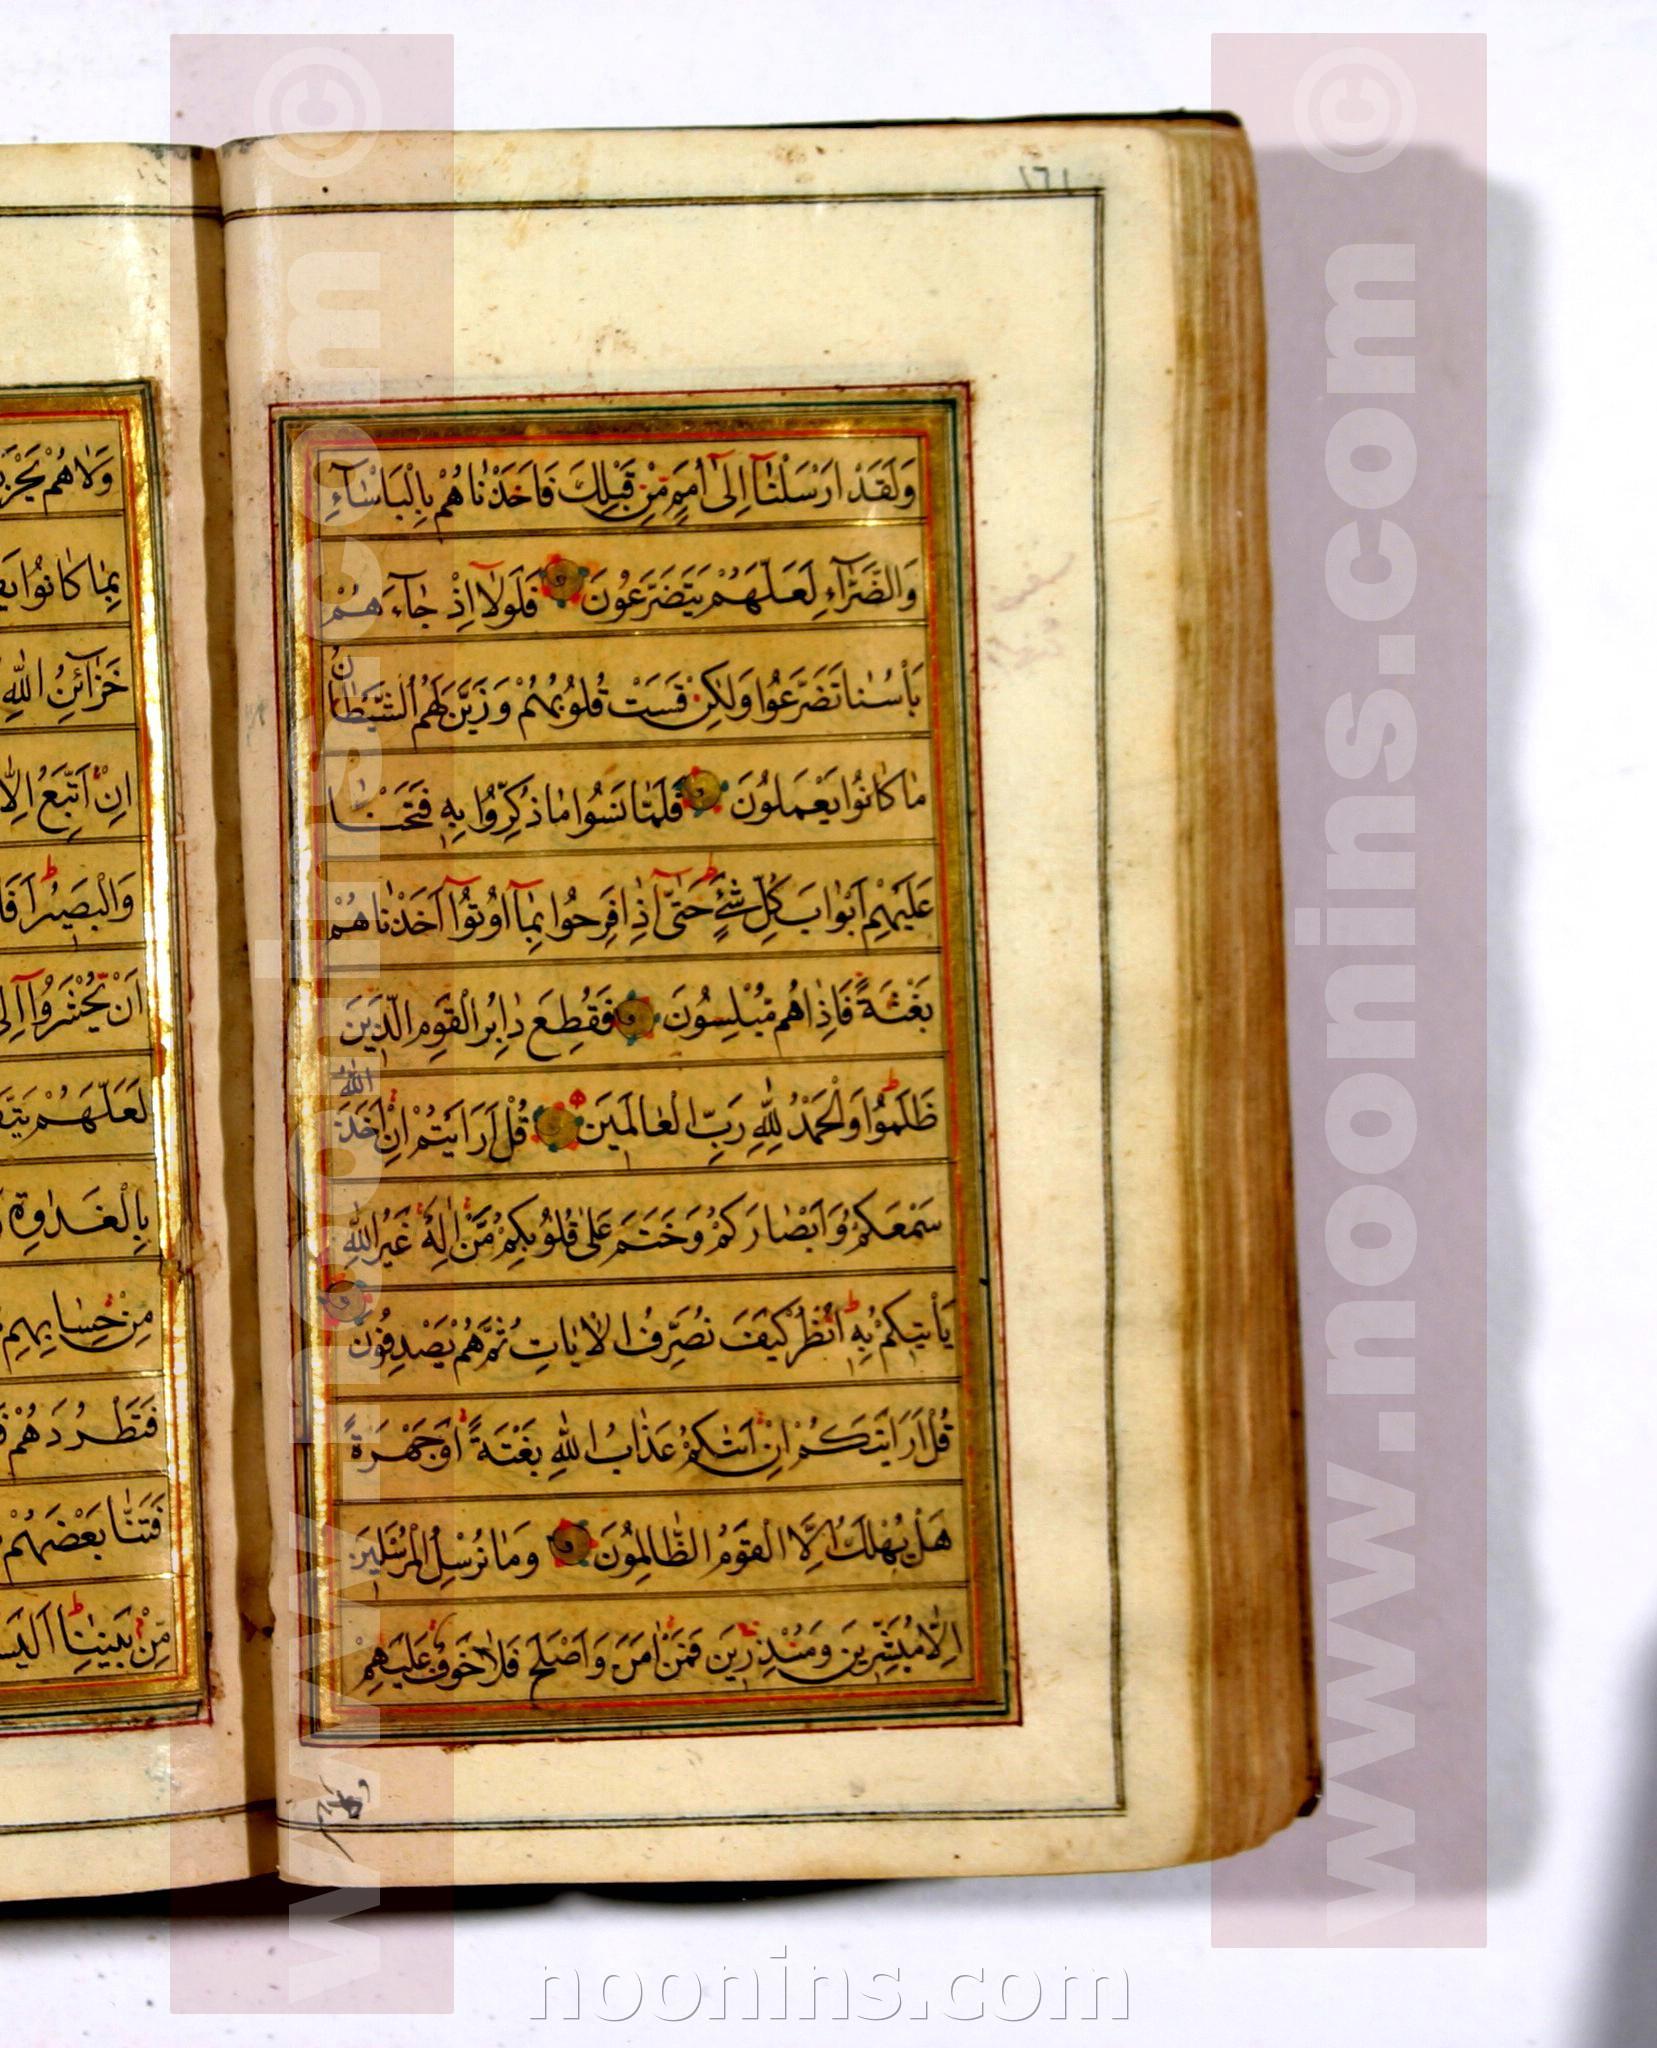 ١٦١
وَلَقَدْ اَرْسَلْنٰآ اِلٰٓى اُمَمٍ مِّنْ قَبْلِكَ فَاَخَذْنٰاهُمْ بِالْبَاْسٰآءِ
وَالضَّرّٰآءِ لَعَلَّهُمْ يَتَضَرَّعُونَ فَلَوْلٰٓا اِذْ جٰآءَهُمْ
بَاْسُنٰا تَضَرَّعُوا وَلٰكِنْ قَسَتْ قُلُوبُهُمْ وَزَيَّنَ لَهُمُ الشَّيْطٰانُ
مٰا كٰانُوا يَعْمَلُونَ فَلَمّٰا نَسُوا مٰا ذُكِّرُوا بِهٖ فَتَحْنٰا
عَلَيْهِمْ اَبْوٰابَ كُلِّ شَیْءٍ حَتّٰىٓ اِذٰا فَرِحُوا بِمٰآ اُوتُوٓا اَخَذْنٰاهُمْ
بَغْتَةً فَاِذٰا هُمْ مُبْلِسُونَ فَقُطِعَ دٰابِرُ الْقَوْمِ الَّذِينَ
ظَلَمُوا وَالْحَمْدُ لِلّٰهِ رَبِّ الْعٰالَمِينَ قُلْ اَرَاَيْتُمْ اِنْ اَخَذَ اللّٰهُ
سَمْعَكُمْ وَاَبْصٰارَكُمْ وَخَتَمَ عَلٰى قُلُوبِكُمْ مَّنْ اِلٰهٌ غَيْرُ اللّٰهِ
يَاْتِيكُمْ بِهٖ اُنْظُرْ كَيْفَ نُصَرِّفُ الْاٰيٰاتِ ثُمَّ هُمْ يَصْدِفُونَ
قُلْ اَرَاَيْتَكُمْ اِنْ اَتٰىكُمْ عَذٰابُ اللّٰهِ بَغْتَةً اَوْ جَهْرَةً
هَلْ يُهْلَكُ اِلَّا الْقَوْمُ الظّٰالِمُونَ وَمٰا نُرْسِلُ الْمُرْسَلِينَ
اِلّٰا مُبَشِّرِينَ وَمُنْذِرِينَ فَمَنْ اٰمَنَ وَاَصْلَحَ فَلٰا خَوْفٌ عَلَيْهِمْ
وَلٰا هُمْ
بِمٰا كٰانُوا
خَزٰآئِنُ اللّٰهِ
اِنْ اَتَّبِعُ اِلّٰا
وَالْبَصِيرُ
اَنْ يُحْشَرُوٓا اِلٰى
لَعَلَّهُمْ
بِالْغَدٰوةِ
مِنْ حِسٰابِهِمْ
فَتَطْرُدَهُمْ
فَتَنّٰا بَعْضَهُمْ
مِّنْ بَيْنِنٰا
www.noonins.com ©
www.noonins.com ©
noonins.com